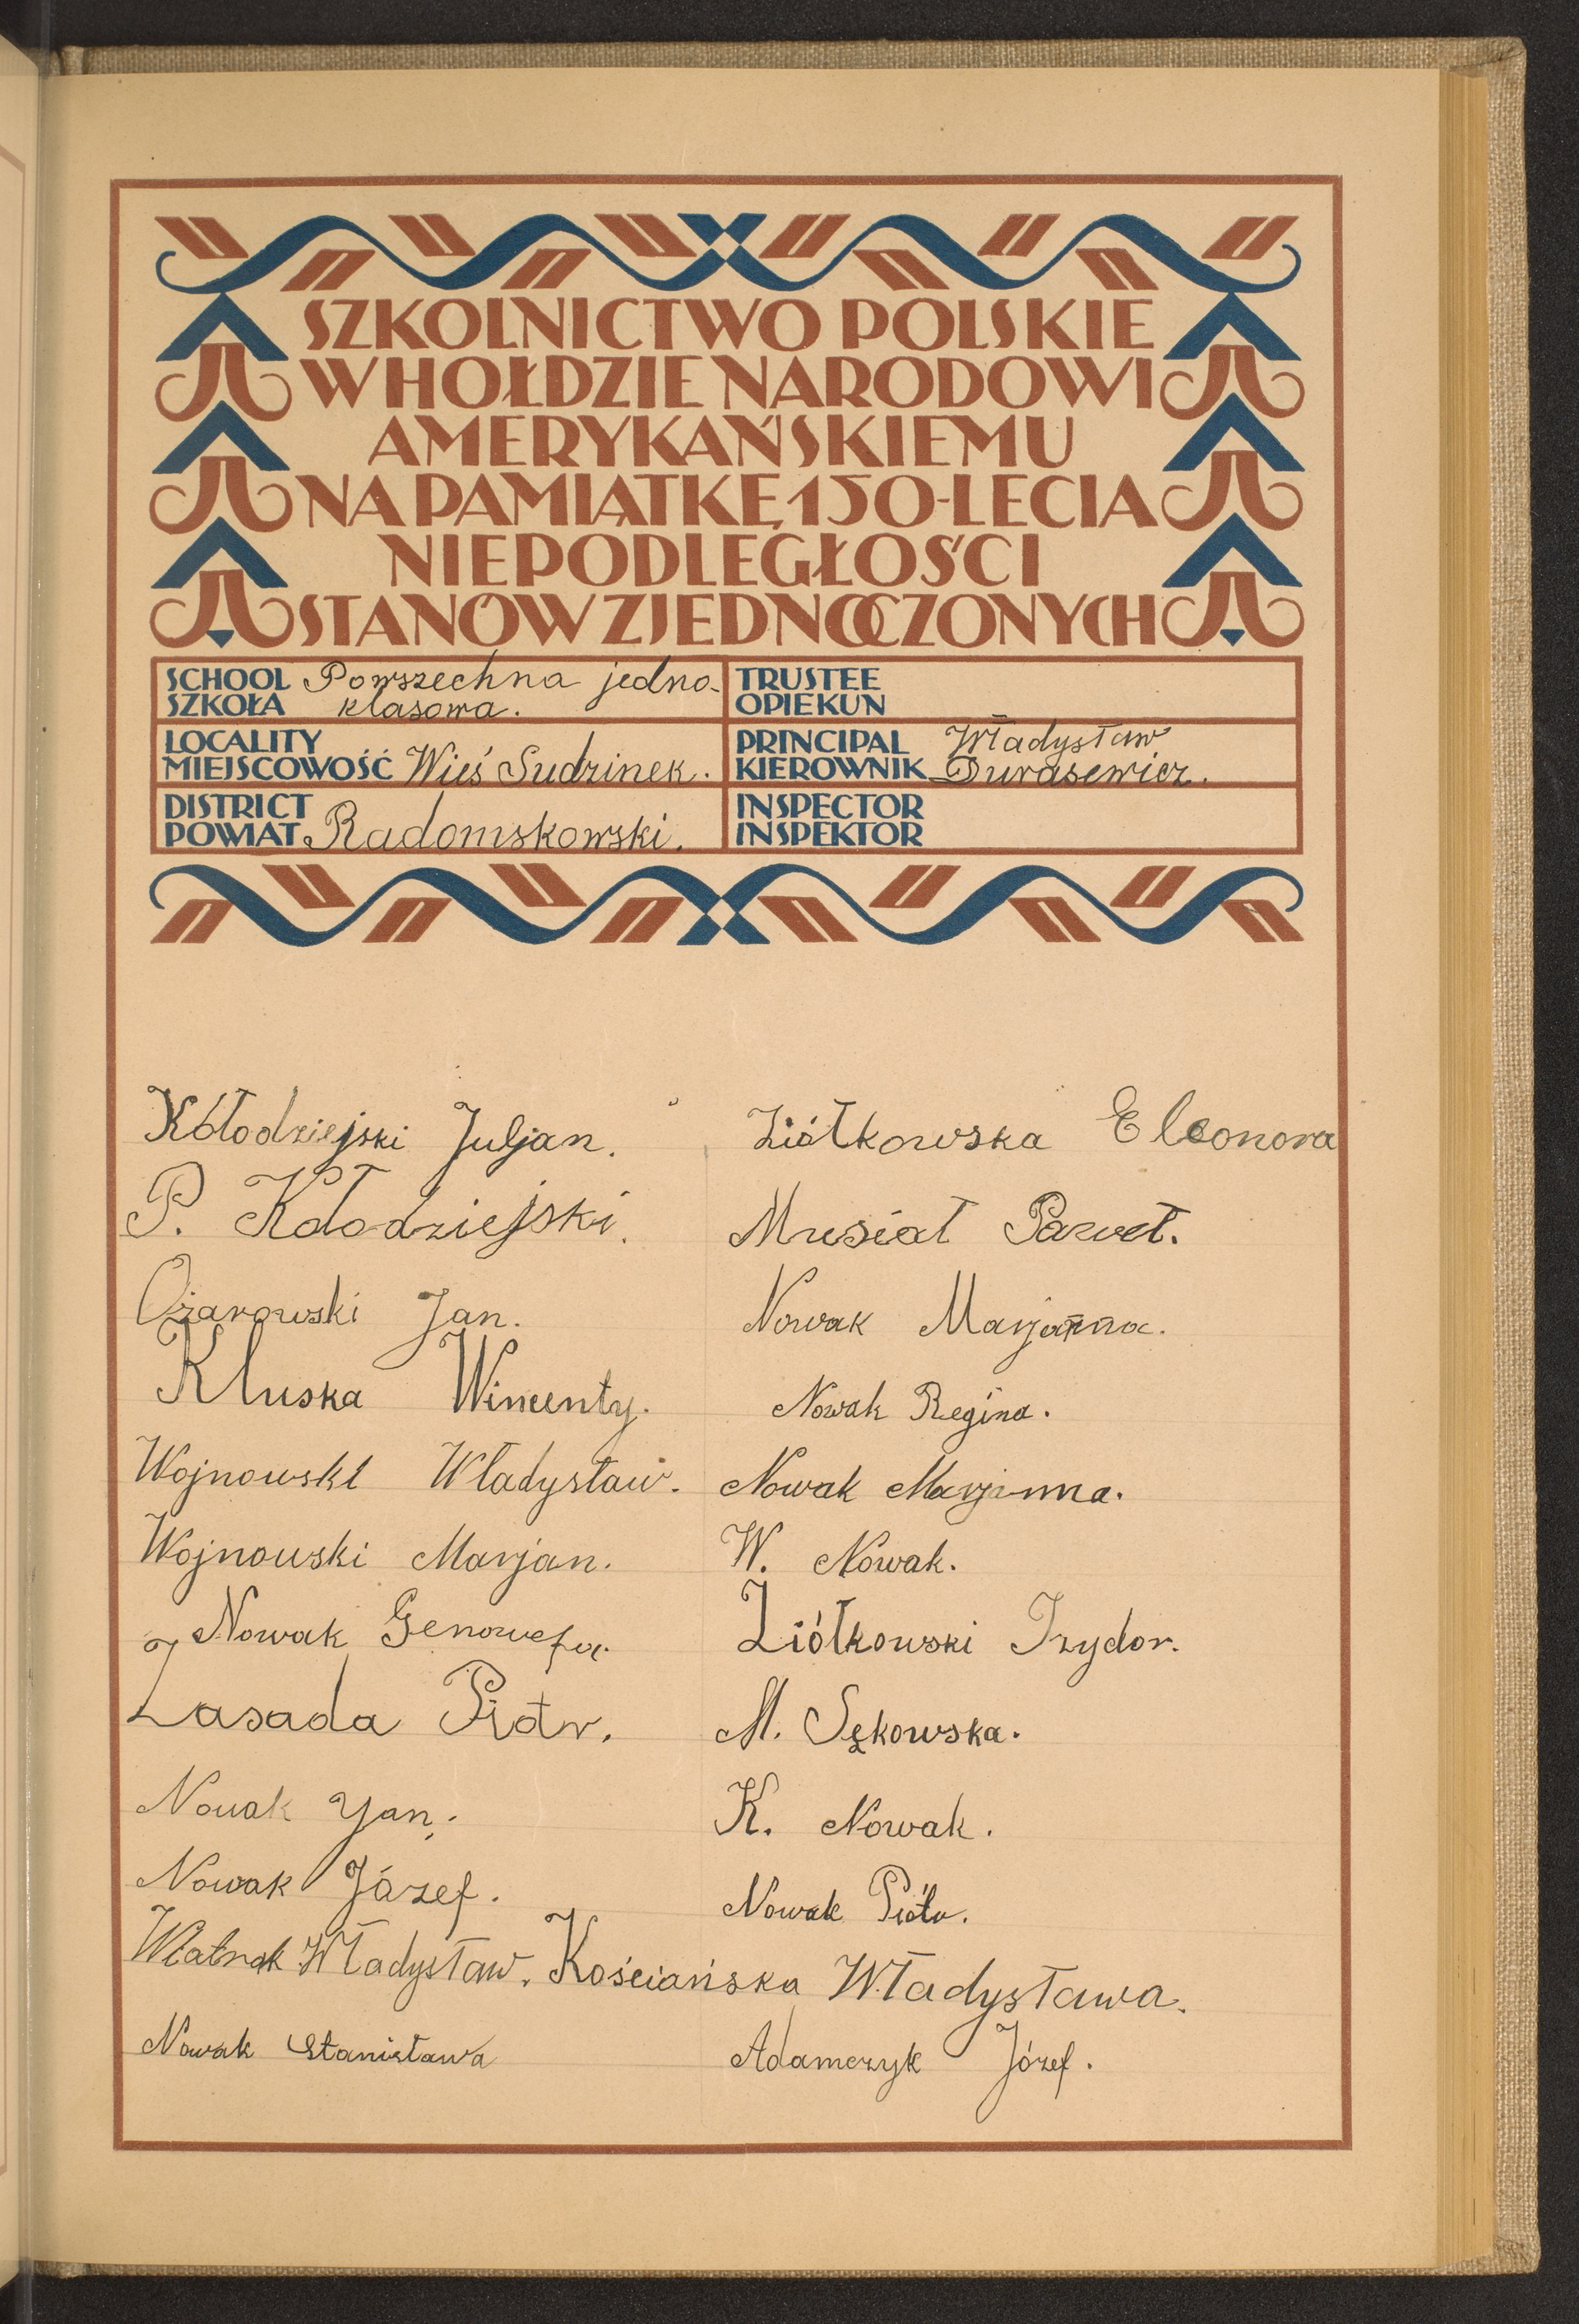 SZKOLNICTWO POLSKIE
W HOŁDZIE NARODOWI
AMERYKAŃSKIEMU
NA PAMIĄTKĘ 150-LECIA
NIEPODLEGŁOŚCI
STANÓW ZJEDNOCZONYCH
SCHOOL
SZKOŁA
Powszechna jedno-
klasowa.
TRUSTEE
OPIEKUN
LOCALITY
MIEJSCOWOŚĆ
Wieś Sudzinek.
PRINCIPAL
KIEROWNIK
Władysław
Durasewicz.
DISTRICT
POWIAT
Radomskowski.
INSPECTOR
INSPEKTOR
Kółodziejski Juljan.
P. Kołodziejski.
Ożarowski Jan.
Kluska Wincenty.
Wojnowski Władysław.
Wojnowski Marjan.
Nowak Genowefa.
Zasada Piotr.
Nowak Yan.
Nowak Józef.
Władysław.
Nowak Stanisława
Ziółkowska Eleonora
Musiał Paweł.
Nowak Marjanna.
Nowak Regina.
Nowak Marjanna.
W. Nowak.
Ziółkowski Izydor.
M. Sękowska.
K. Nowak.
Nowak Piotr.
Kościańska Władysława.
Adamczyk Józef.